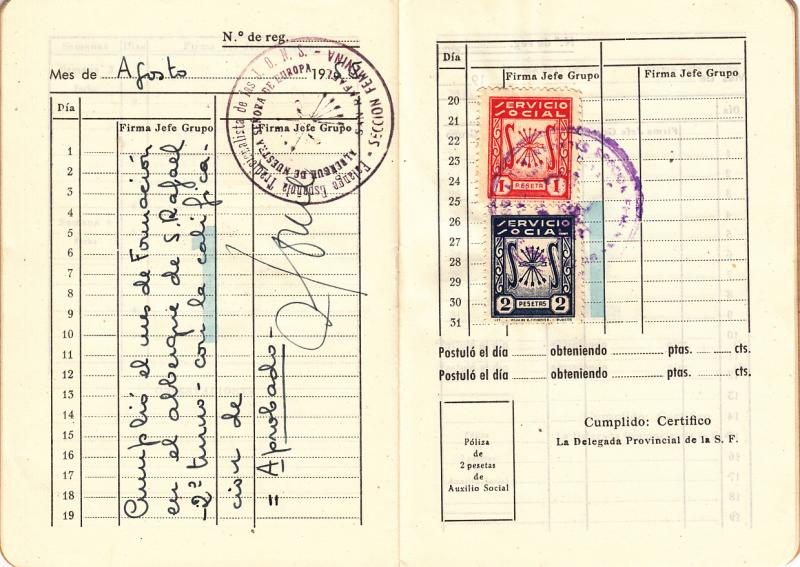 N.º de reg.
Mes de Agosto 19
Falange Española Tradicionalista de las J. O. N. S. - SECCION FEMENINA
ALBERGUE DE NUESTRA SEÑORA DE EUROPA
SAN RAFAEL
Día
Firma Jefe Grupo
Firma Jefe Grupo
1
2
3
4
5
6
7
8
9
10
11
12
13
14
15
16
17
18
19
Cumplió el mes de Formación
en el albergue de S. Rafael
-2º turno- con la califica-
ción de
= Aprobado -
Día
Firma Jefe Grupo
Firma Jefe Grupo
20
21
22
23
24
25
26
27
28
29
30
31
SERVICIO
SOCIAL
1 PESETA 1
SERVICIO
SOCIAL
2 PESETAS 2
Postuló el día obteniendo ptas. cts.
Postuló el día obteniendo ptas. cts.
Póliza
de
2 pesetas
de
Auxilio Social
Cumplido: Certifico
La Delegada Provincial de la S. F.